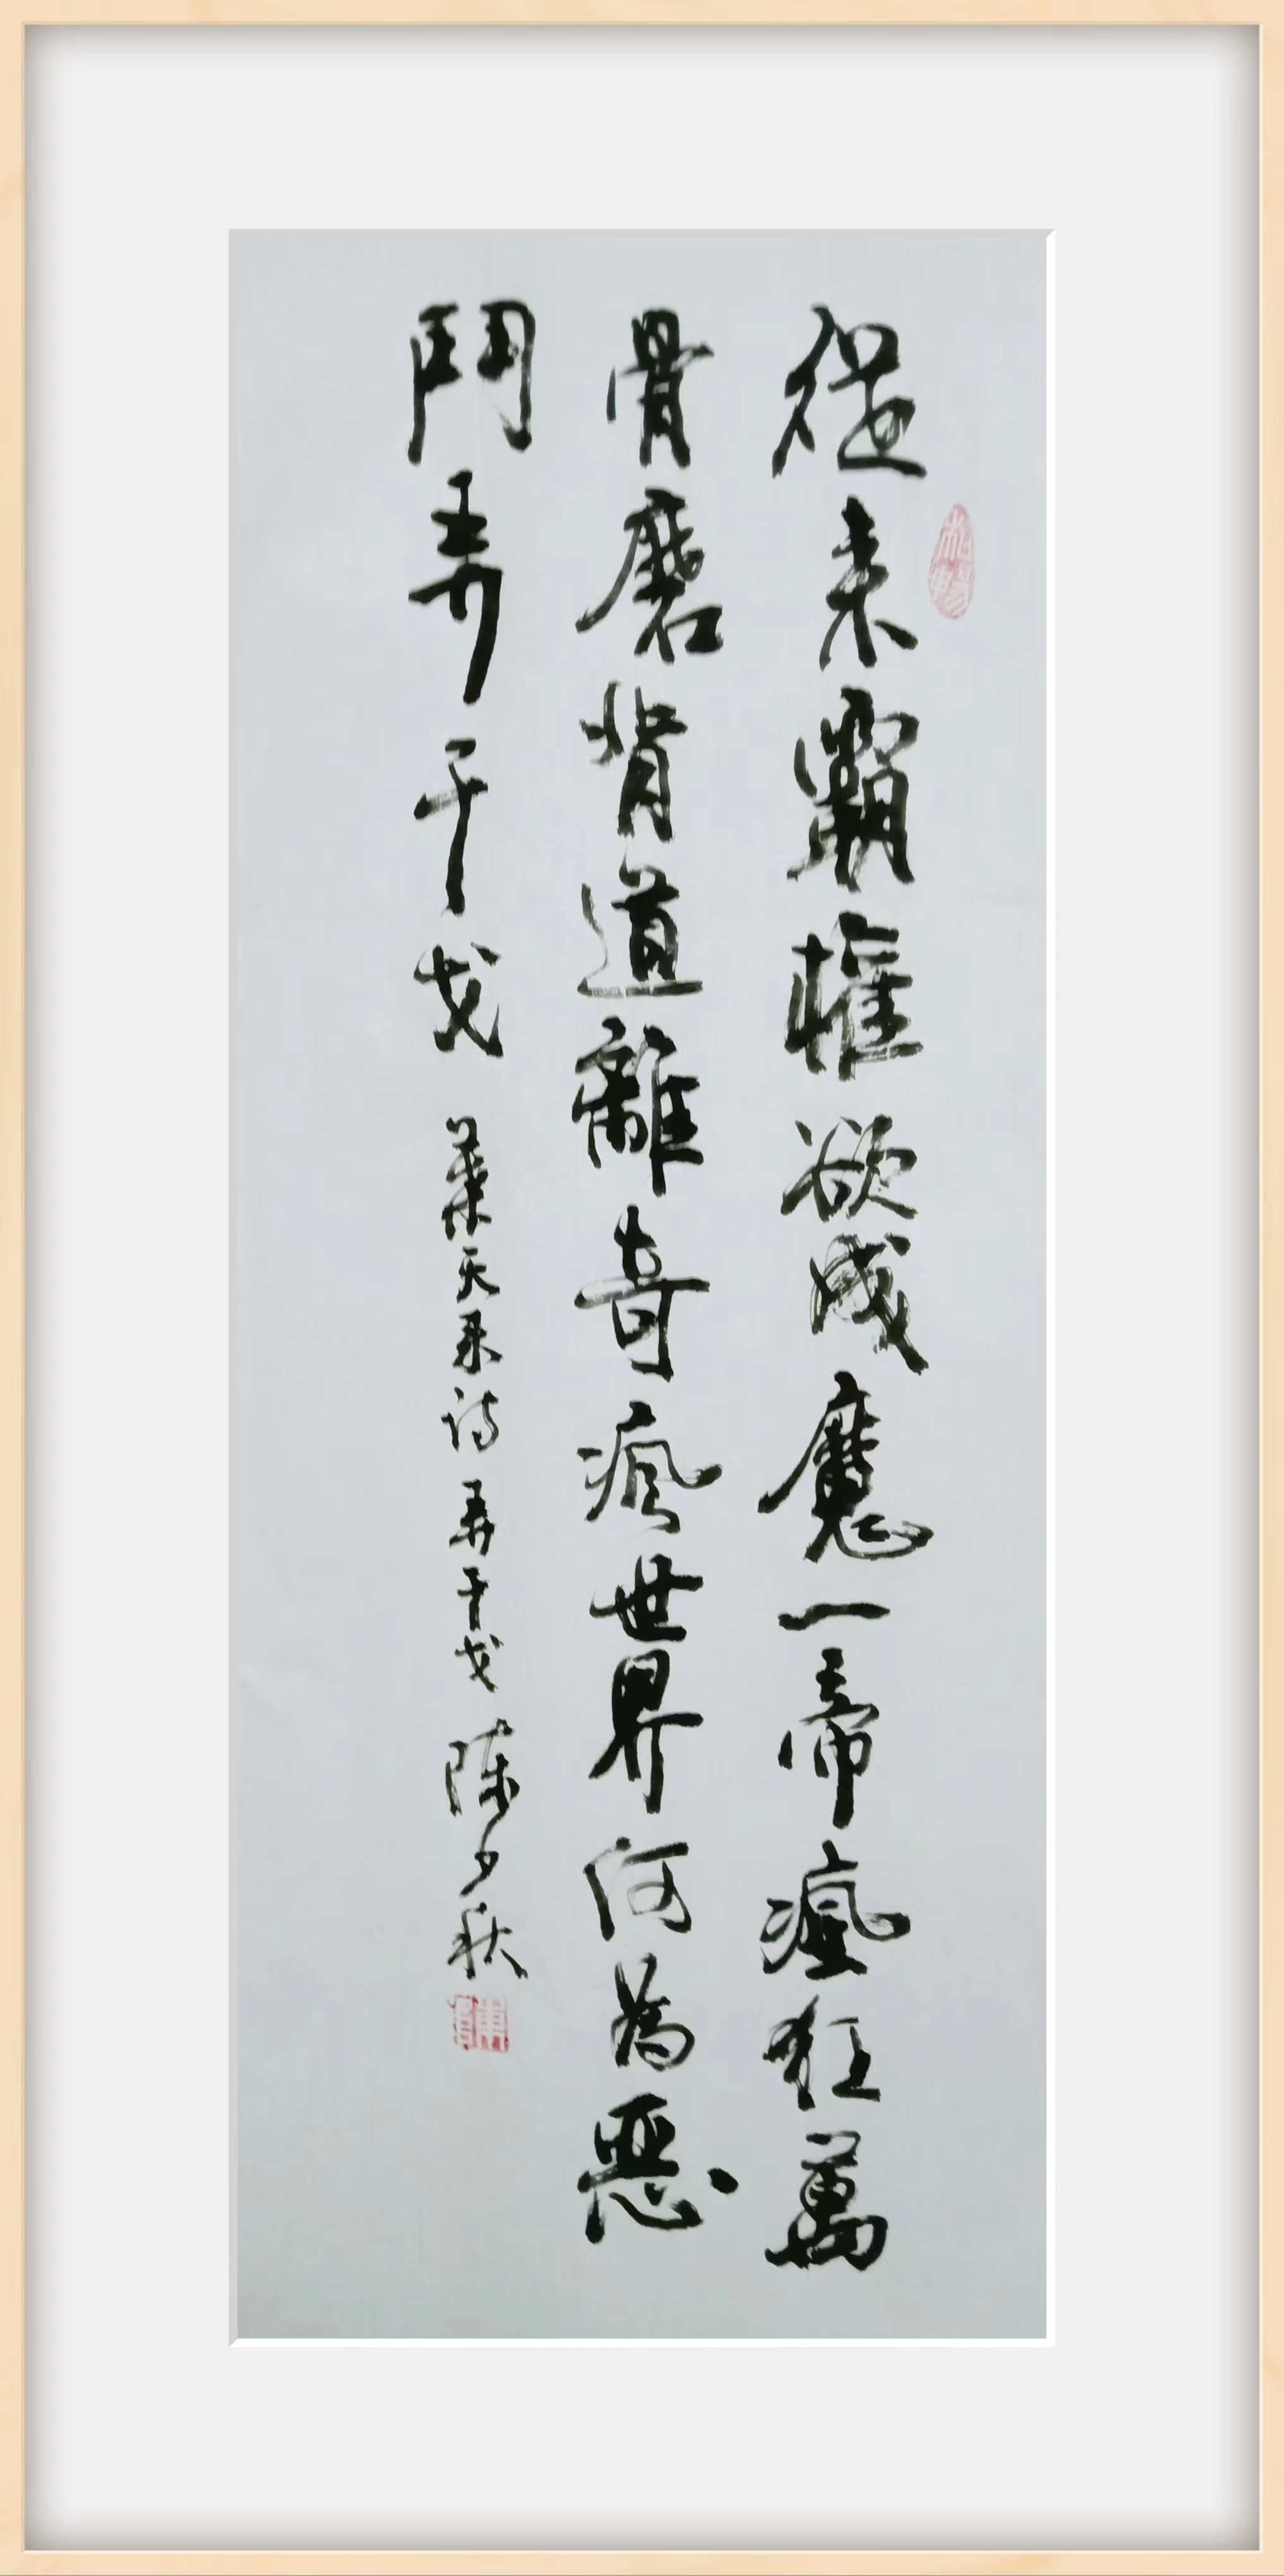 從来霸權欲成魔一帝瘋狂萬
骨磨背道離奇瘋世界何為惡
鬥弄干戈 葉天来诗 弄干戈 陈夕秋